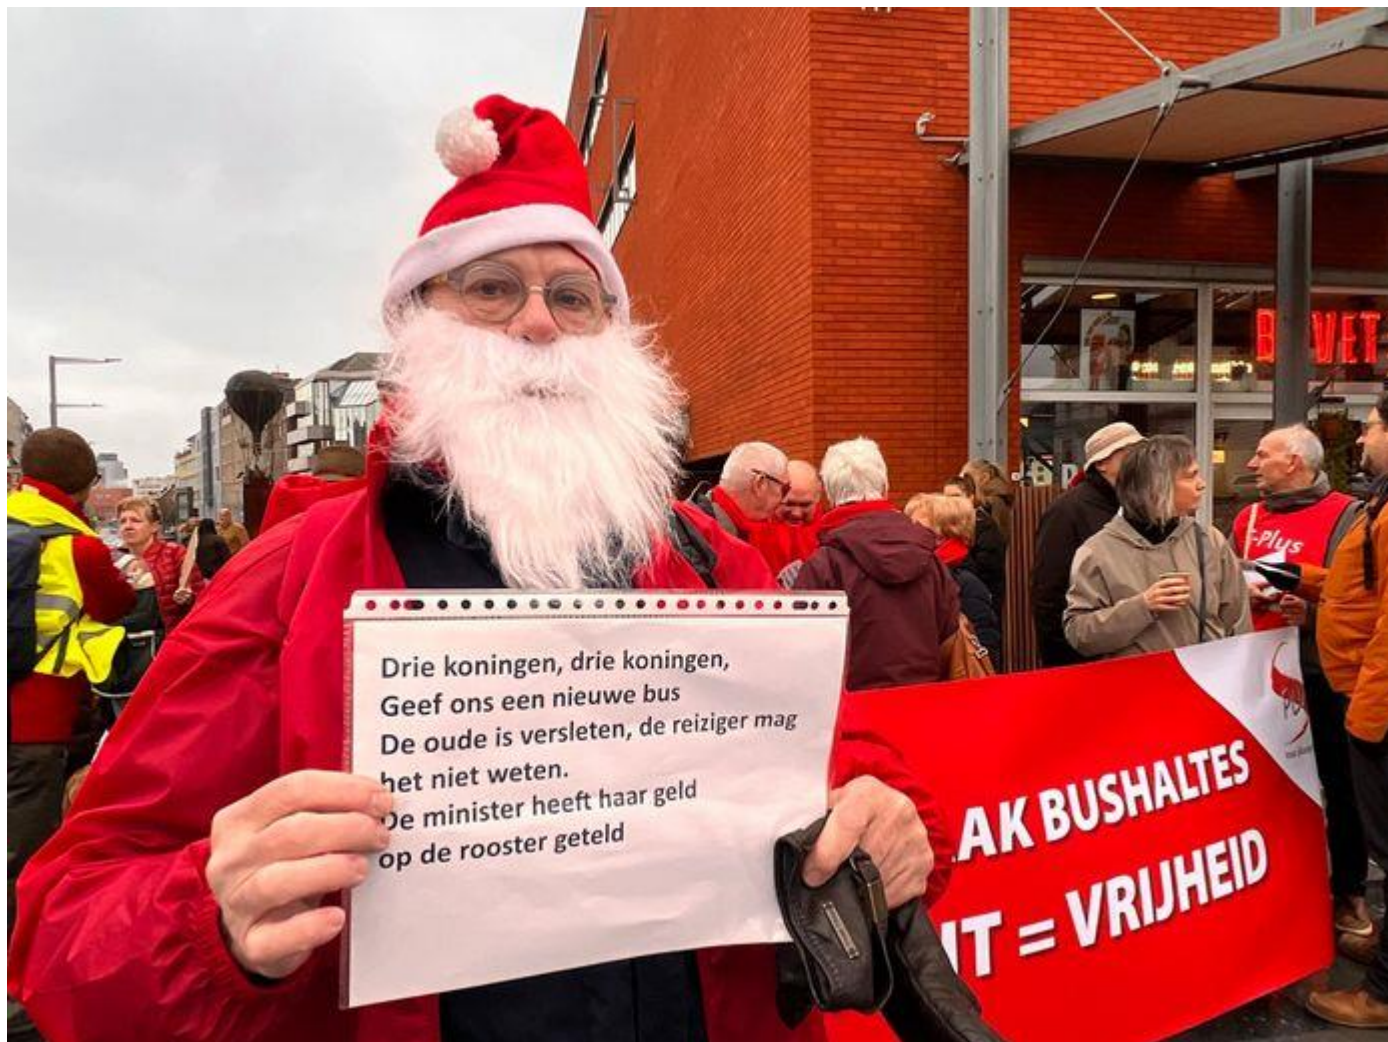 Drie koningen, drie koningen,
Geef ons een nieuwe bus
De oude is versleten, de reiziger mag
het niet weten.
De minister heeft haar geld
op de rooster geteld
BUSHALTES
= VRIJHEID
-Plus